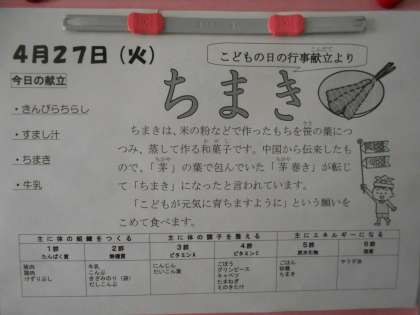 4月27日（火）
こどもの日の行事献立より
こんだて
今日の献立
ちまき
・きんぴらちらし
・すまし汁
・ちまき
・牛乳
ちまきは、米の粉などで作ったもちを笹の葉につ
つみ、蒸して作る和菓子です。中国から伝来したも
ので、「茅」の葉で包んでいた「茅巻き」が転じ
て「ちまき」になったと言われています。
「こどもが元気に育ちますように」という願いを
こめて食べます。
主に体の組織をつくる 主に体の調子を整える 主にエネルギーになる
1群 2群 3群 4群 5群 6群
たんぱく質 無機質 ビタミンA ビタミンC 炭水化物 脂質
豚肉 牛乳 にんじん ごぼう ごはん サラダ油
鶏肉 こんぶ だいこん葉 グリンピース 砂糖
けずりぶし きざみのり（袋） キャベツ ちまき
だしこんぶ たまねぎ
えのきたけ